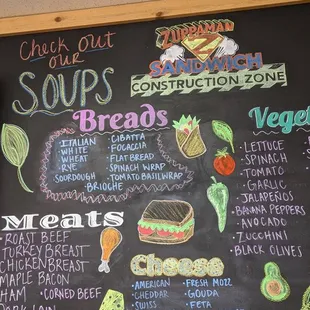 Check out
our
Soups
ZUPPAMAN
SANDWICH
CONSTRUCTION ZONE
Breads
ITALIAN
WHITE
WHEAT
RYE
SOURDOUGH
CIBATTA
FOCACCIA
FLATBREAD
SPINACH WRAP
TOMATO BASIL WRAP
BRIOCHE
Veget
LETTUCE
SPINACH
TOMATO
GARLIC
JALAPEÑOS
BANANA PEPPERS
AVOCADO
ZUCCHINI
BLACK OLIVES
Meats
ROAST BEEF
TURKEY BREAST
CHICKEN BREAST
MAPLE BACON
HAM
CORNED BEEF
Cheese
AMERICAN
CHEDDAR
SWISS
FRESH MOZZ
GOUDA
FETA